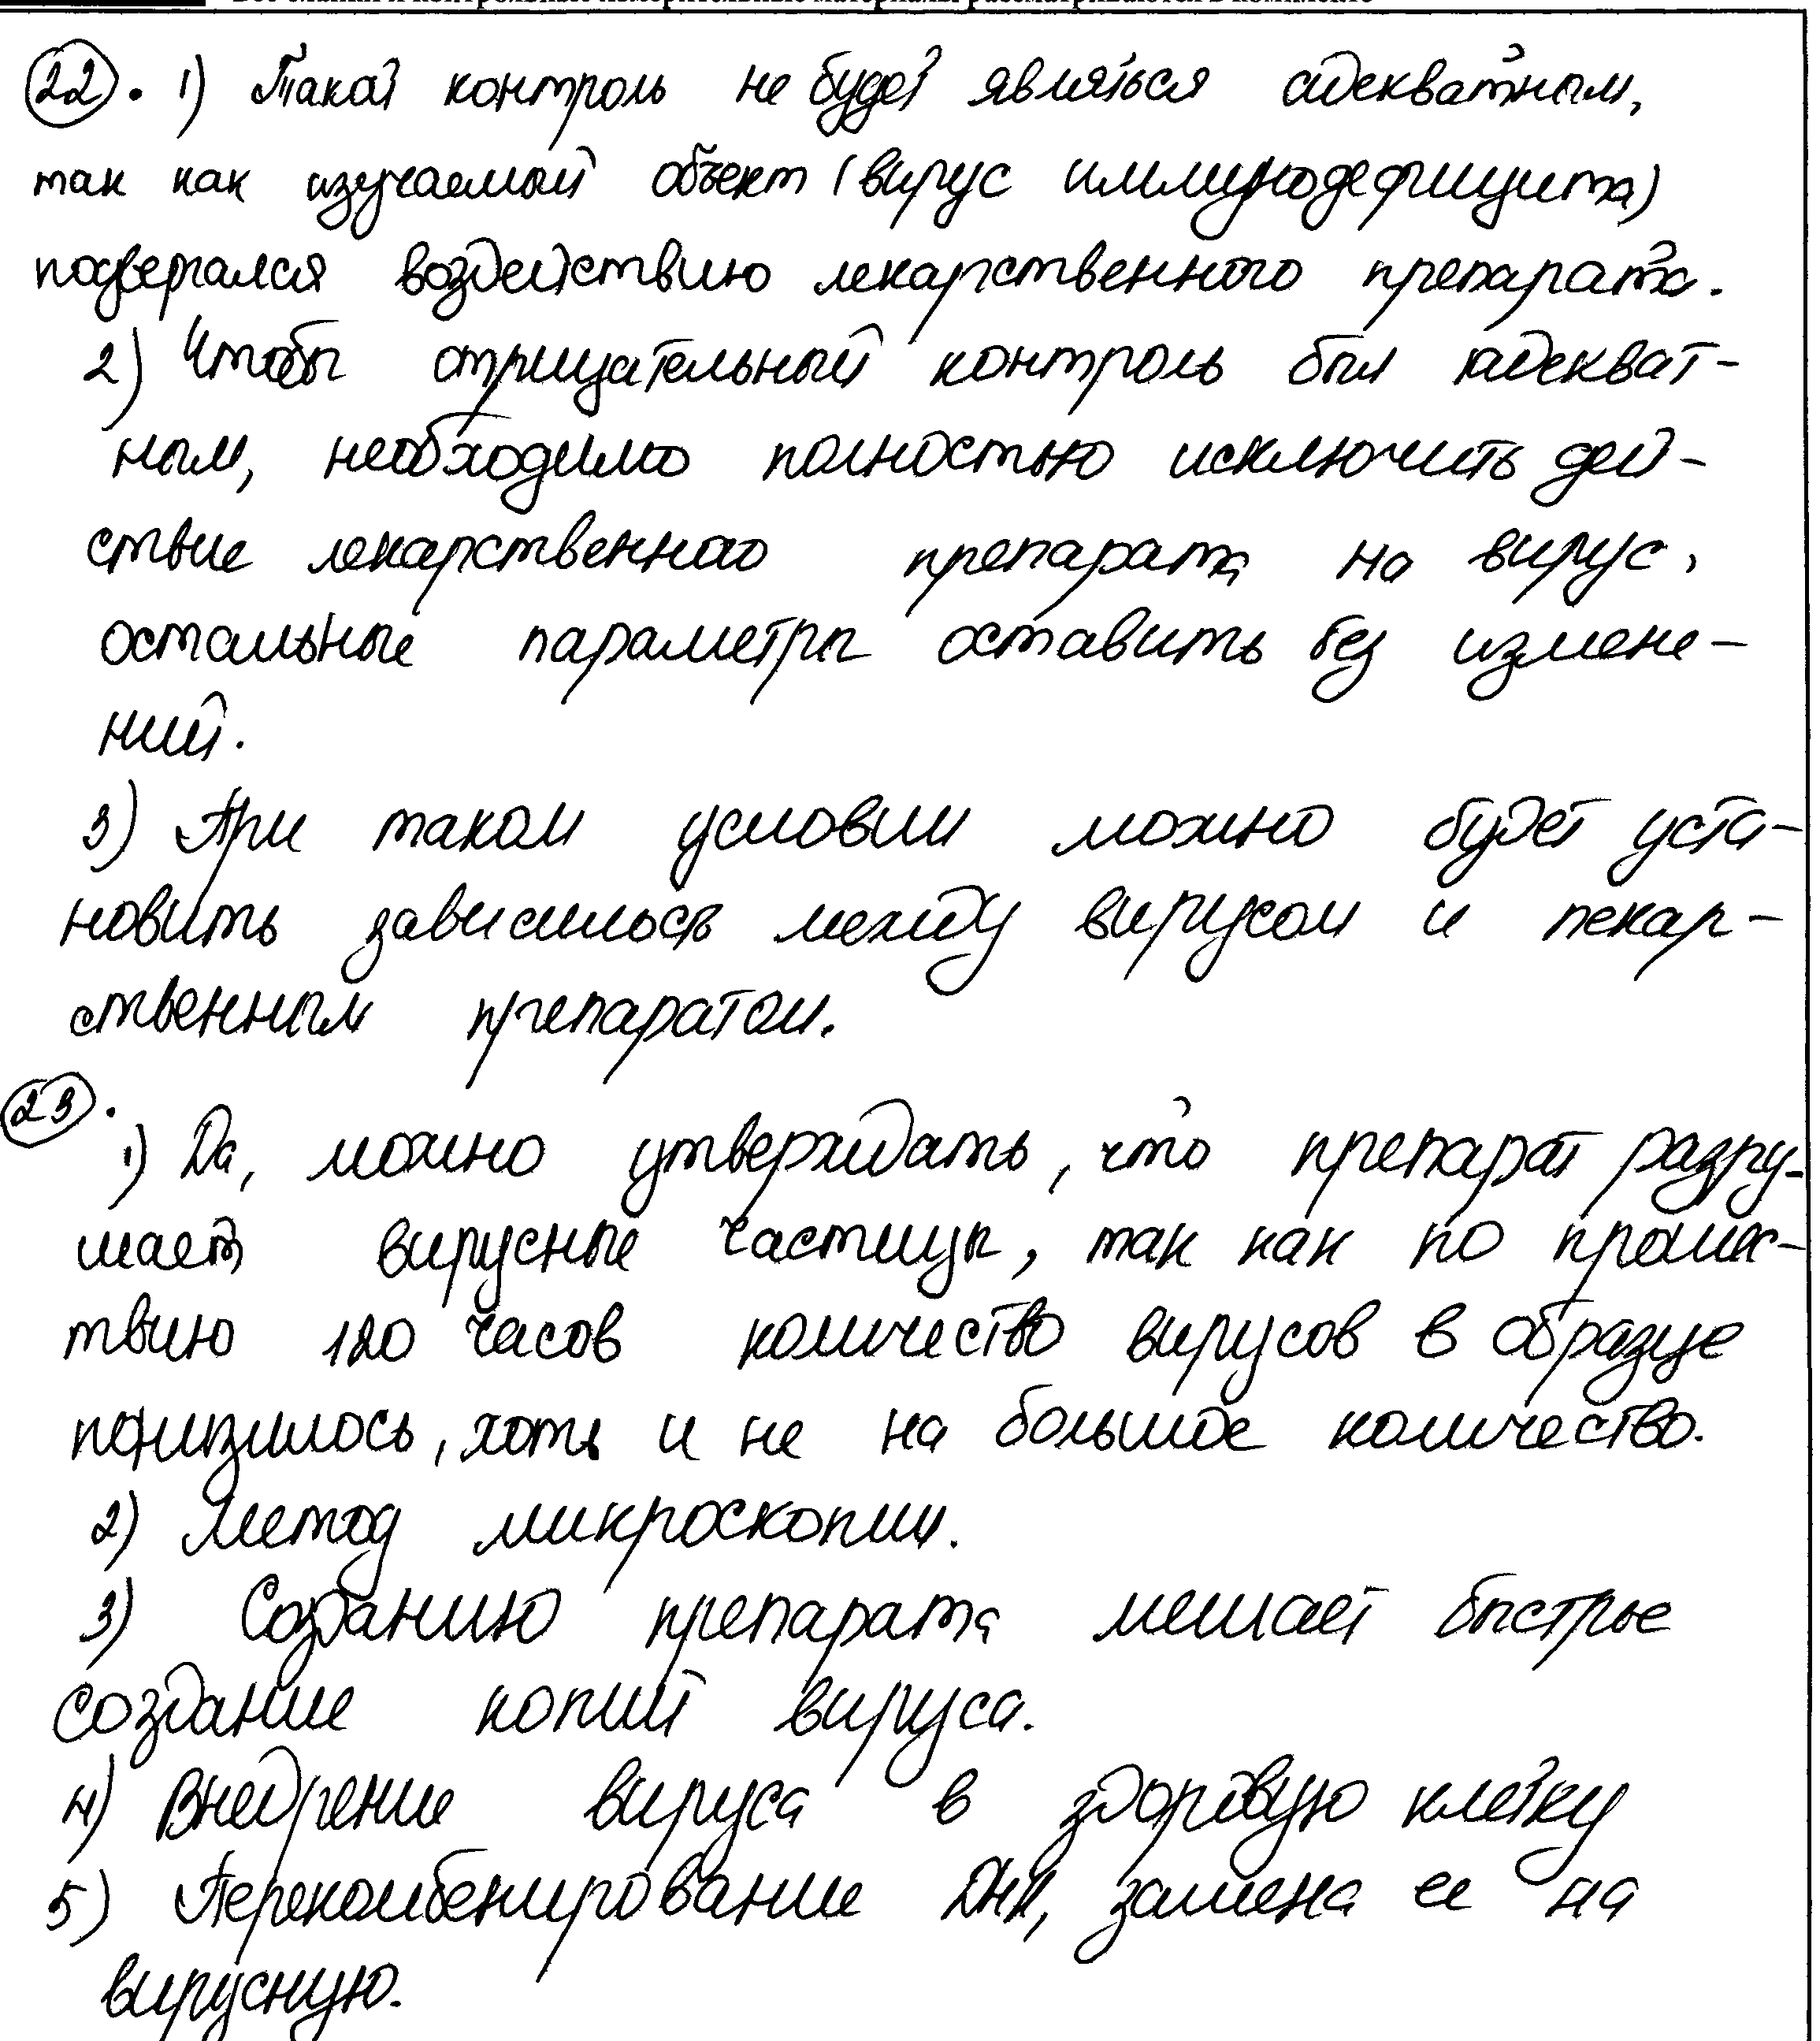 Все бланки и контрольные измерительные материалы рассматриваются в комплекте
22. 1) Такой контроль не будет являться адекватным,
так как изучаемый объект (вирус иммунодефицита)
подвергался воздействию лекарственного препарата.
2) Чтобы отрицательный контроль был адекват-
ным, необходимо полностью исключить дей-
ствие лекарственного препарата на вирус,
остальные параметры оставить без измене-
ний.
3) При таком условии можно будет уста-
новить зависимось между вирусом и лекар-
ственным препаратом.
23.
1) Да, можно утверждать, что препарат разру-
шает вирусные частицы, так как по прошес-
твию 120 часов количество вирусов в образце
понизилось, хоть и не на большое количество.
2) Метод микроскопии.
3) Созданию препарата мешает быстрое
создание копий вируса.
4) Внедрение вируса в здоровую клетку
5) Перекомбенирование ДНК, замена ее на
вирусную.